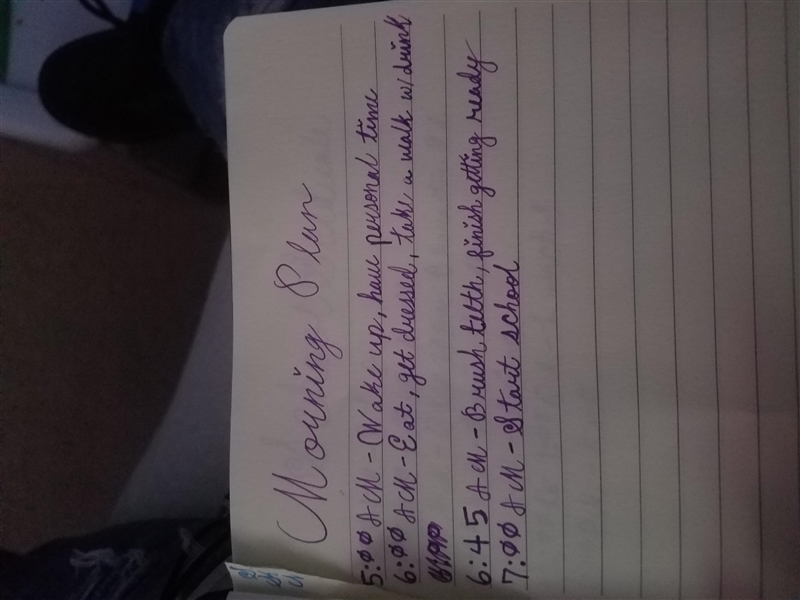 Morning Plan
5:00 AM - Wake up, have personal time
6:00 AM - Eat, get dressed, take a walk w/ drink
6:45 AM - Brush teeth, finish getting ready
7:00 AM - Start school